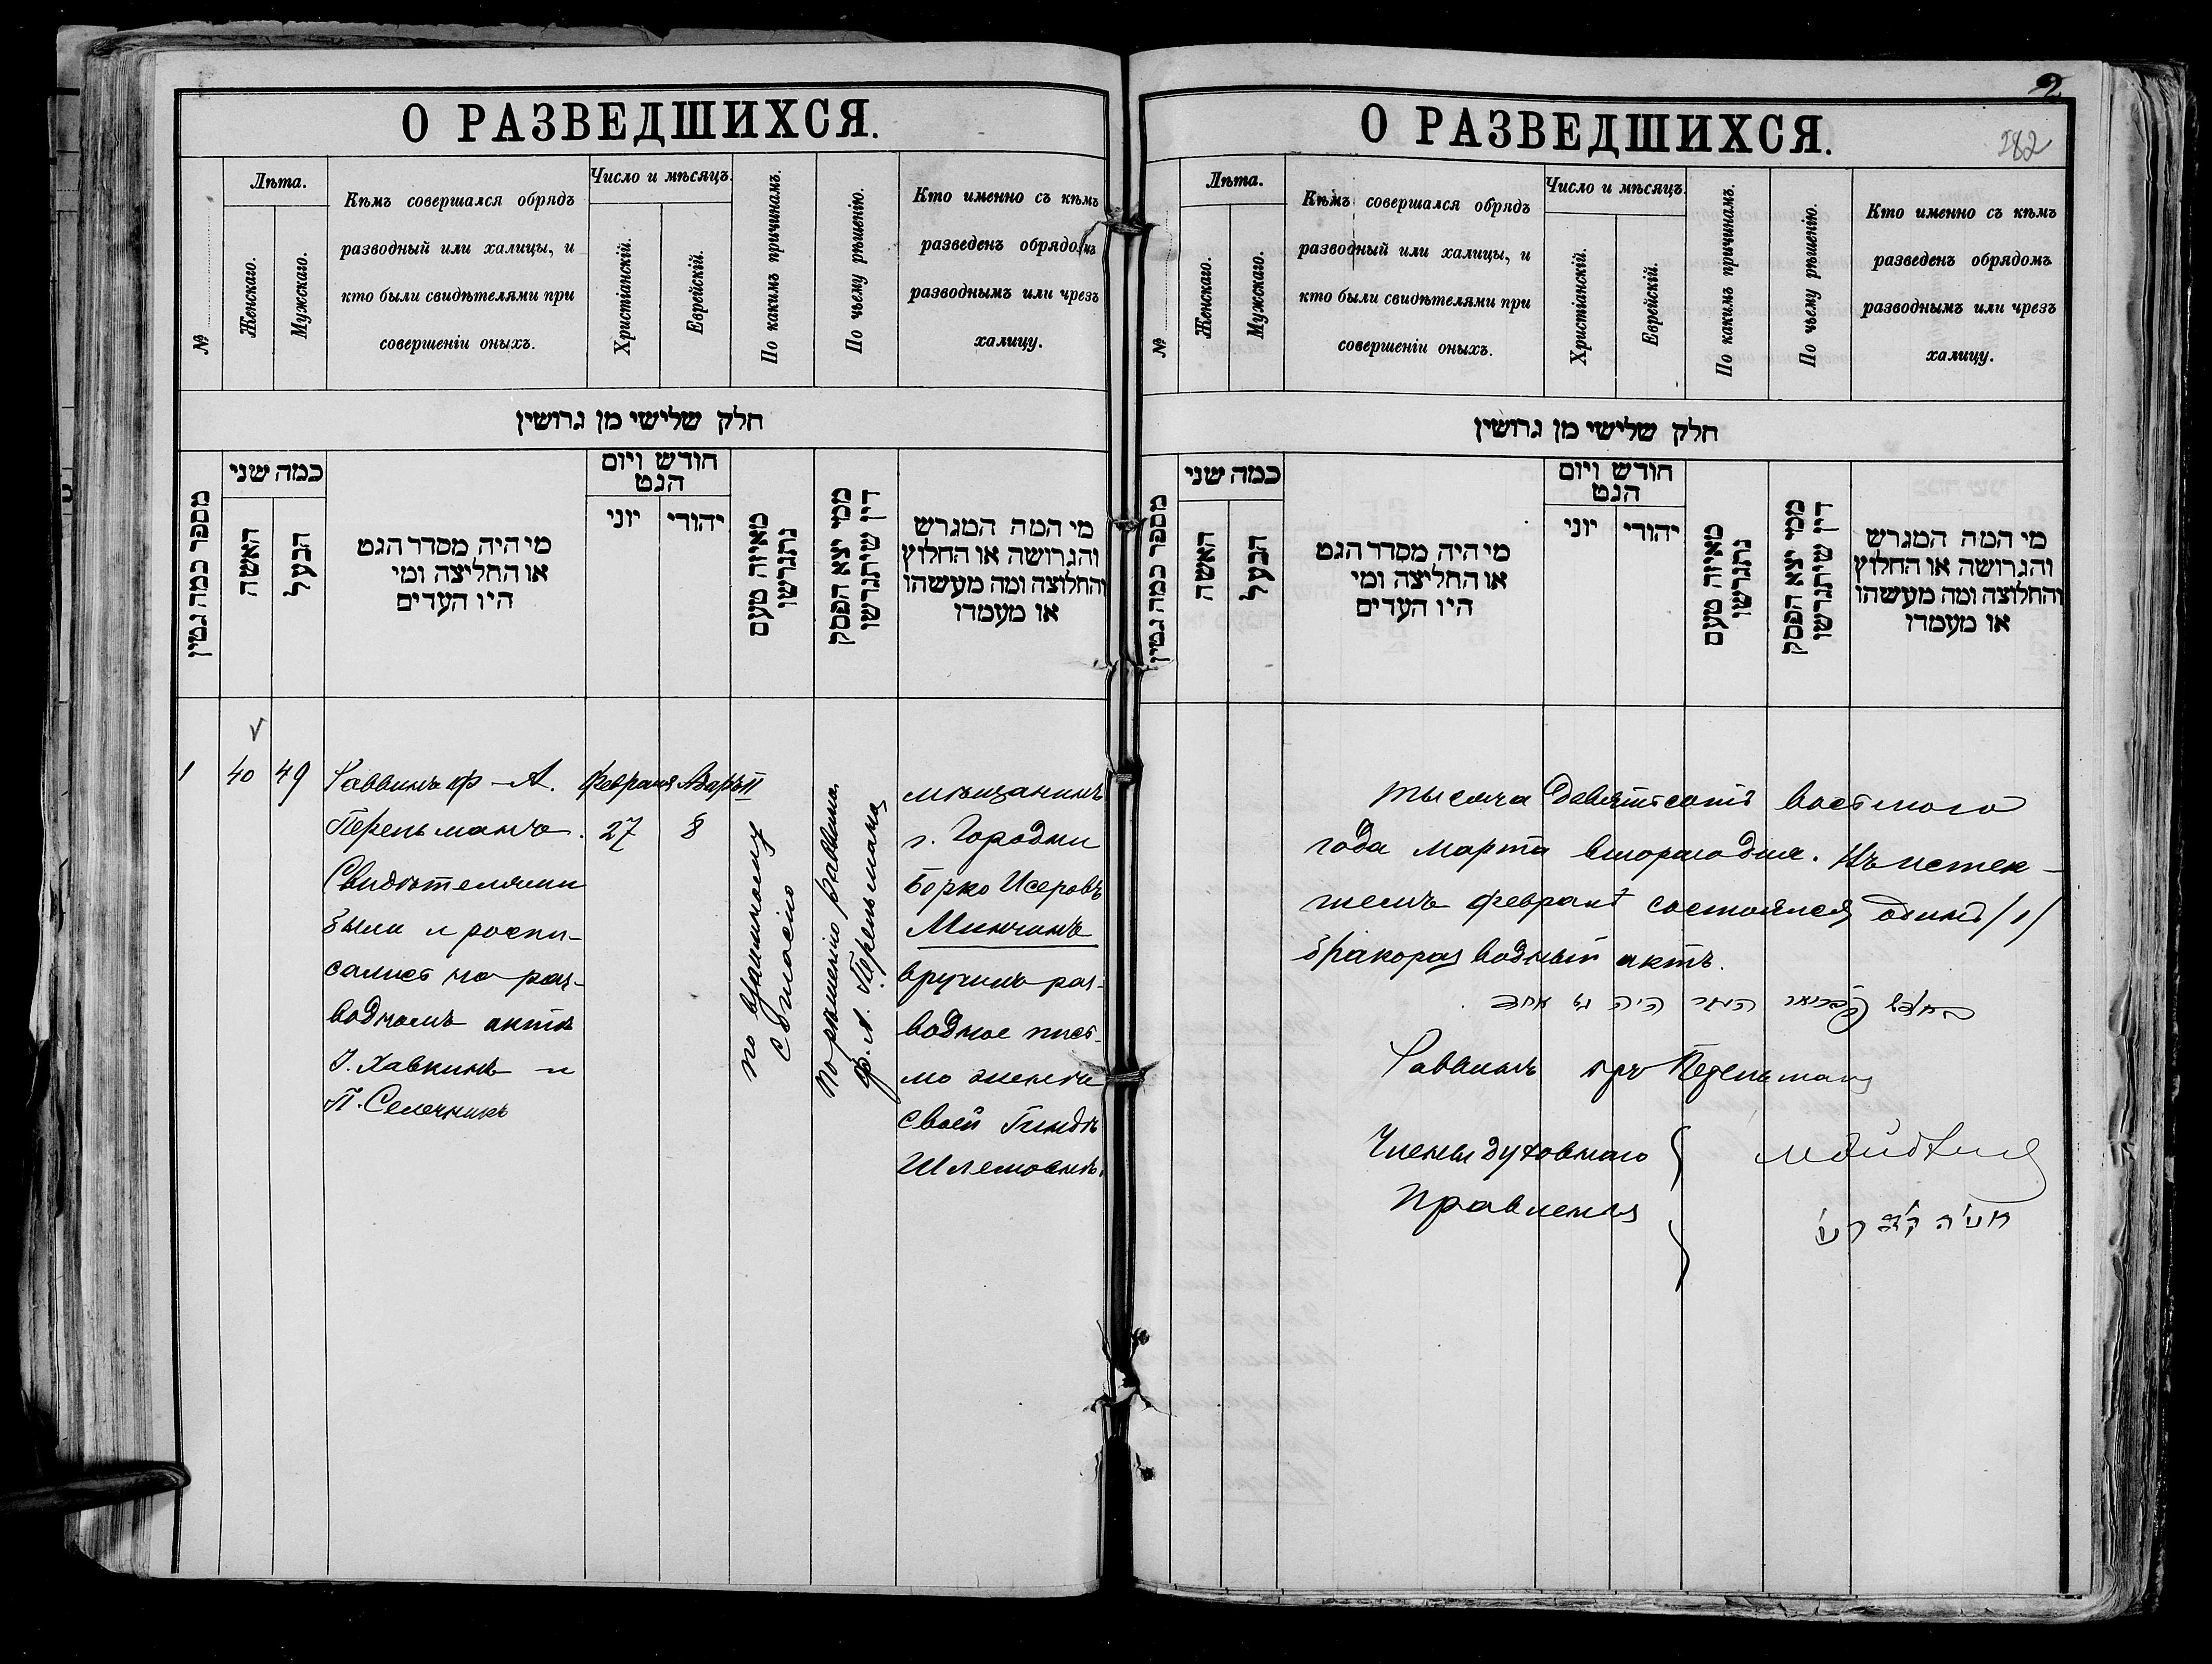 О РАЗВЕДШИХСЯ.
№
Лѣта.
Женскаго.
Мужскаго.
Кѣмъ совершался обрядъ
разводный или халицы, и
кто были свидѣтелями при
совершеніи оныхъ.
Число и мѣсяцъ.
Христіанскій.
Еврейскій.
По какимъ причинамъ.
По чьему рѣшенію.
Кто именно съ кѣмъ
разведенъ обрядомъ
разводнымъ или чрезъ
халицу.
חלק שלישי מן גרושין
מספר כמה גטין
כמה שני
האשה
הבעל
מי היה מסדר הגט
או החליצה ומי
היו העדים
חודש ויום
הגט
יוני
יהודי
מאיזה טעם
נתגרשו
ממי יצא הפסק
דין שיתגרשו
מי המה המגרש
והגרושה או החלוץ
והחלוצה ומה מעשהו
או מעמדו
1
40
49
Раввинъ Ф-А.
Перельманъ.
Свидѣтелями
были и роспи-
сались на раз-
водномъ актѣ
І. Хавкинъ и
П. Селечникъ
Февраля
27
Адаръ II
8
по взаимному
согласію
По рѣшенію раввина
Ф. А. Перельмана
мѣщанинъ
г. Городни
Борко Исеровъ
Минчинъ
вручилъ раз-
водное пись-
мо женѣ
своей Гиндѣ
Шлемовнѣ.
2
282
О РАЗВЕДШИХСЯ.
№
Лѣта.
Женскаго.
Мужскаго.
Кѣмъ совершался обрядъ
разводный или халицы, и
кто были свидѣтелями при
совершеніи оныхъ.
Число и мѣсяцъ.
Христіанскій.
Еврейскій.
По какимъ причинамъ.
По чьему рѣшенію.
Кто именно съ кѣмъ
разведенъ обрядомъ
разводнымъ или чрезъ
халицу.
חלק שלישי מן גרושין
מספר כמה גטין
כמה שני
האשה
הבעל
מי היה מסדר הגט
או החליצה ומי
היו העדים
חודש ויום
הגט
יוני
יהודי
מאיזה טעם
נתגרשו
ממי יצא הפסק
דין שיתגרשו
מי המה המגרש
והגרושה או החלוץ
והחלוצה ומה מעשהו
או מעמדו
Тысяча девятьсотъ восьмого
года марта второго дня. Въ истек-
шемъ февралѣ состоялся одинъ /1/
бракоразводный актъ.
בחדש פברואר העבר היה גט אחד.
Раввинъ Перельманъ
Члены духовнаго
Правленія